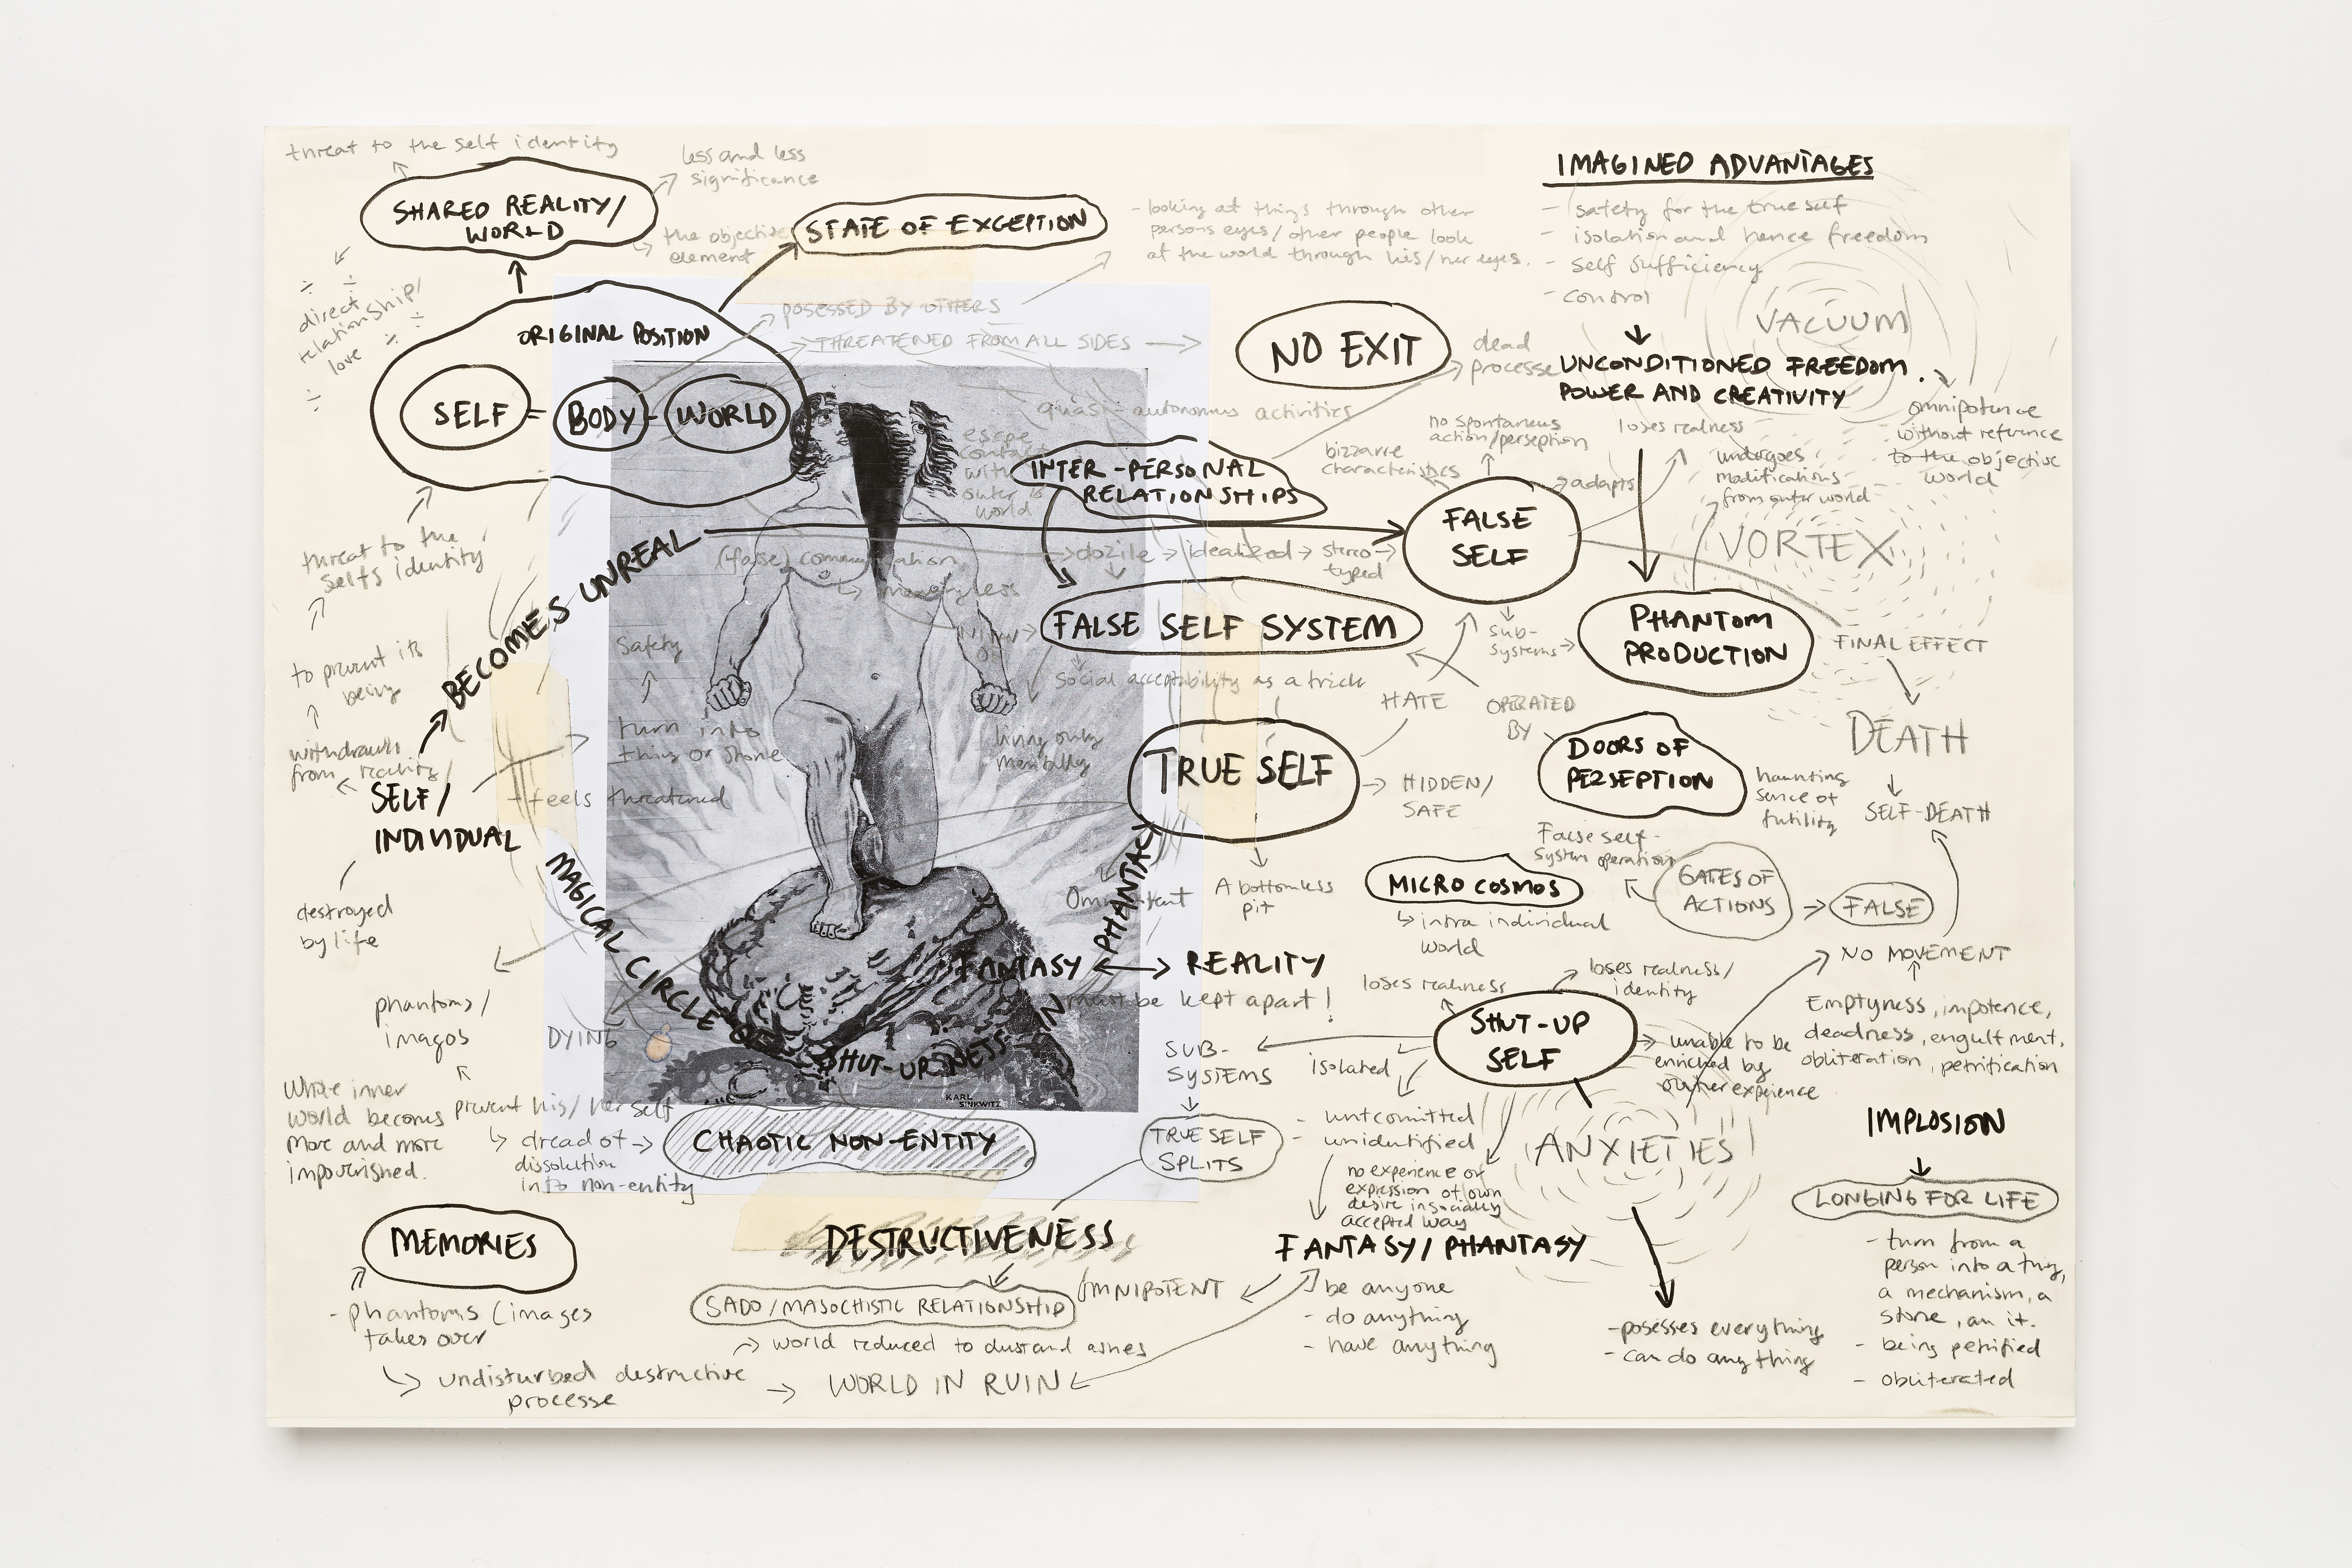 threat to the self identity
less and less
significance
SHARED REALITY/
WORLD
the objective
element
STATE OF EXCEPTION
- looking at things through other
persons eyes/other people look
at the world through his/her eyes.
IMAGINED ADVANTAGES
- safety for the true self
- isolation and hence freedom
- self sufficiency
- control
÷ ÷
direct
relationship/
love ÷ ÷
÷
ORIGINAL POSITION
SELF = BODY - WORLD
POSESSED BY OTHERS
THREATENED FROM ALL SIDES
NO EXIT
dead
processe
VACUUM
UNCONDITIONED FREEDOM
POWER AND CREATIVITY
omnipotence
without refrence
to the objective
world
quasi-autonomus activities
escape
contact
with
outer
world
INTER-PERSONAL
RELATIONSHIPS
bizzarre
characteristics
no spontaneus
action/perseption
adapts
loses realness
undergoes
modifications
from outer world
FALSE
SELF
VORTEX
threat to the
selfs identity
BECOMES UNREAL
(false) communication
meaningless
dozile → idealized → stereo-
typed
FALSE SELF SYSTEM
sub-
systems
PHANTOM
PRODUCTION
FINAL EFFECT
to prevent its
being
Safety
Social acceptability as a trick
HATE
OPERATED
BY
DEATH
withdrawls
from reality/
SELF/
INDIVIDUAL
turn into
thing or stone
feels threatened
living only
mentally
TRUE SELF
HIDDEN/
SAFE
DOORS OF
PERSEPTION
haunting
sence of
futility
SELF-DEATH
destroyed
by life
MAGICAL CIRCLE OF
SHUT-UP-NESS
IN
PHANTAC
Omnipotent
A bottomless
pit
MICRO COSMOS
intra individual
world
False self-
system operation
GATES OF
ACTIONS
FALSE
FANTASY ↔ REALITY
must be kept apart!
NO MOVEMENT
loses realness
loses realness/
identity
phantoms/
imagos
DYING
KARL
SINKWITZ
SUB-
SYSTEMS
isolated
SHUT-UP
SELF
unable to be
enriched by
outher experience
Emptyness, impotence,
deadness, engulfment,
obliteration, petrification
Whole inner
world becomes
more and more
impovrished.
prevent his/her self
dread of
dissolution
into non-entity
CHAOTIC NON-ENTITY
TRUE SELF
SPLITS
- untcomitted
- unidentified
no experience or
expression of own
desire in socially
accepted way
ANXIETIES
IMPLOSION
LONGING FOR LIFE
- turn from a
person into a thing,
a mechanism, a
stone, an it.
- being petrified
- obliterated
MEMORIES
- phantoms/images
takes over
undisturbed destructive
processe
DESTRUCTIVENESS
SADO/MASOCHISTIC RELATIONSHIP
world reduced to dust and ashes
WORLD IN RUIN
OMNIPOTENT
FANTASY/PHANTASY
be anyone
- do anything
- have anything
- posesses everything
- can do anything